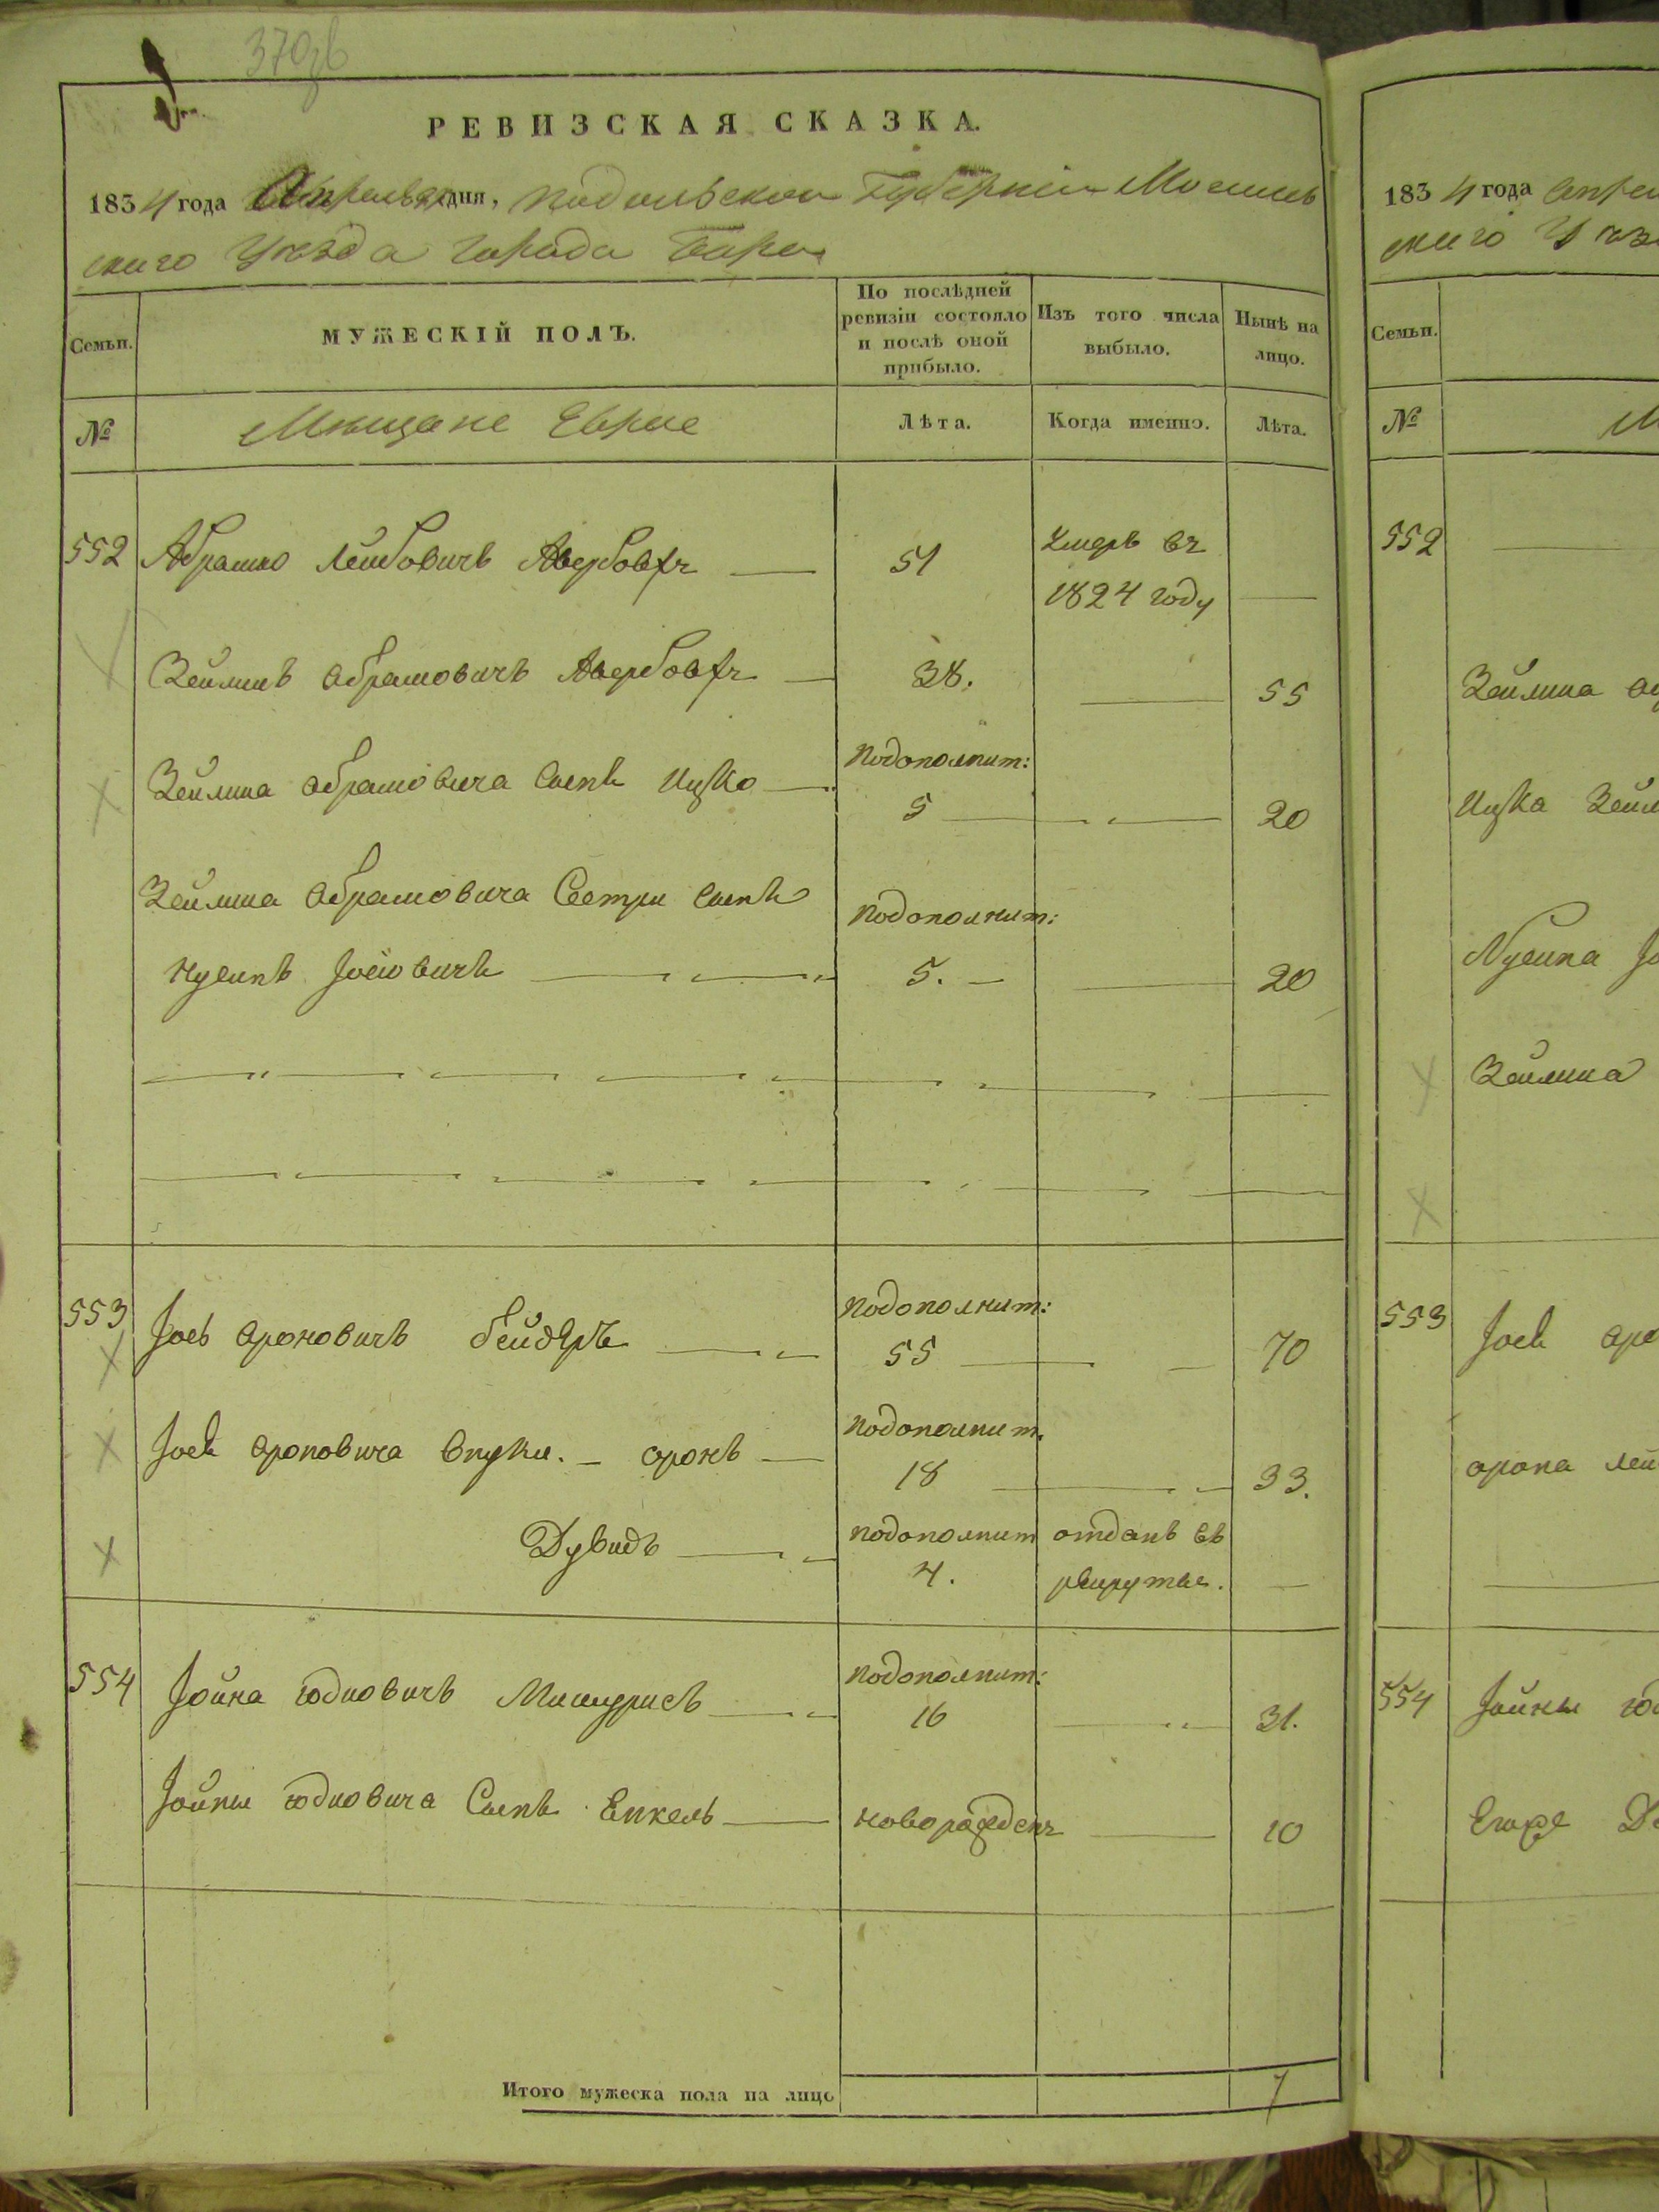 370об
РЕВИЗСКАЯ СКАЗКА.
1834 года Апреля дня, Подольской Губернiи Могилев
скаго Уезда Города Бара
Семьи.
МУЖЕСКІЙ ПОЛЪ.
По послѣдней ревизіи состояло и послѣ оной прибыло.
Изъ того числа выбыло.
Нынѣ на лицо.
№
Мѣщане Евреи
Лѣта.
Когда именно.
Лѣта.
552 Абрамко Лейбовичъ Авербохъ 51 Умеръ въ
1824 году
Зейлигъ Абрамовичъ Авербохъ 38. 55
Подополнит:
Зейлига Абрамовича Сынъ Ицко 5 20
Зейлига Абрамовича Сестри Сынъ Подополнит:
Нусинъ Іосіовичъ 5. 20
553 Іось Ароновичъ Бейдеръ Подополнит:
55 70
Іося Ароновича Внуки. Аронъ Подополнит.
18 33.
Дувидъ Подополнит отданъ въ
4. рекруты.
554 Іойна Юдковичъ Подополнит:
16 31.
Іойны Юдковича Сынъ Енкель Новорожденъ 10
Итого мужеска пола на лицо 7
1834 года Апре
скаго Уез
Семьи.
№
М
552
Зейлига Аб
Ицка Зейл
Нусина Іо
Зейлига
553 Іося Аро
Арона Лей
554 Іойны Юд